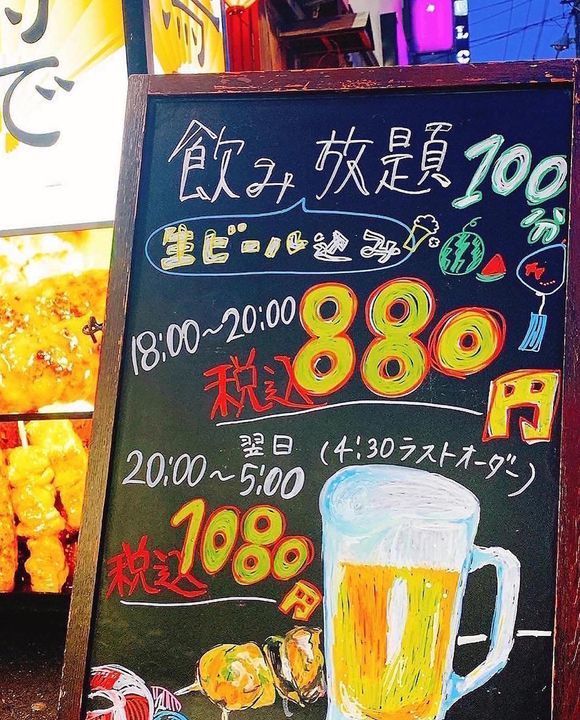 飲み放題 100分
生ビール込み
18:00〜20:00 税込880円
20:00〜翌日5:00 (4:30ラストオーダー)
税込1080円
で